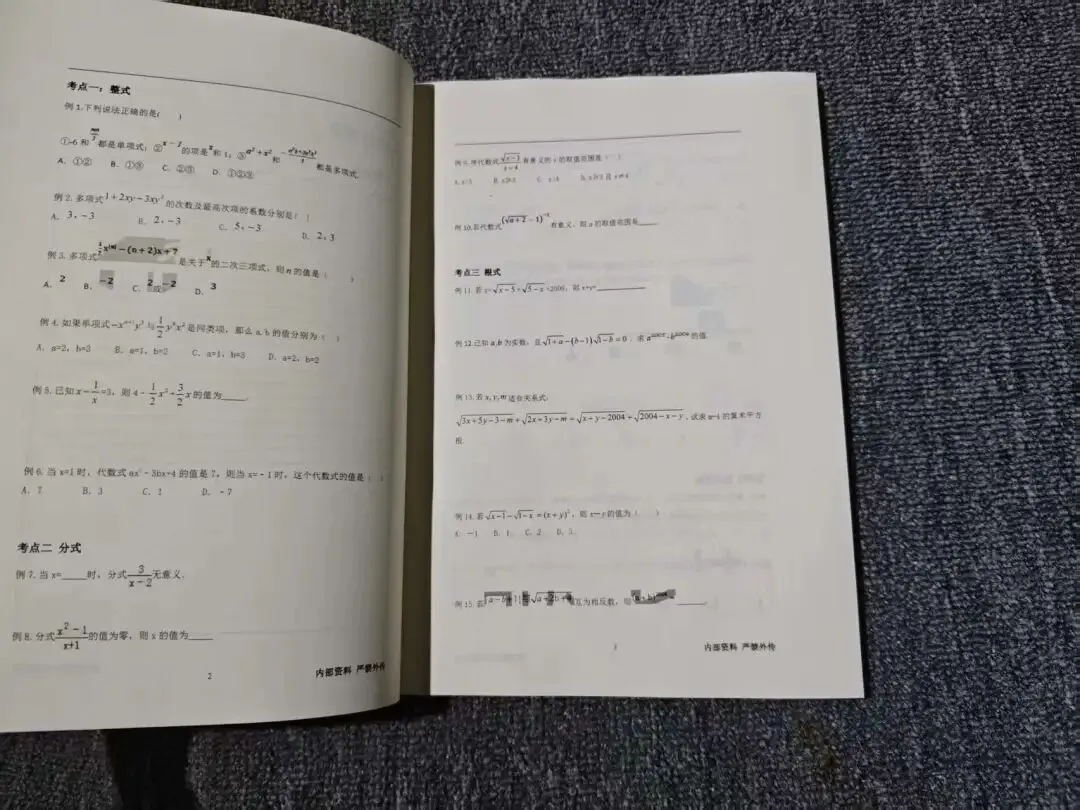 考点一：整式
例1.下列说法正确的是( )
都是单项式；②
的项是
和1；③
和
都是多项式.
A. ①② B. ①③ C. ②③ D. ①②③
例2.多项式1+2xy-3xy²的次数及最高次项的系数分别是( )
A. 3，-3 B. 2，-3 C. 5，-3 D. 2，3
例3.多项式
-(n+2)x+7是关于x的二次三项式，则n的值是( )
A. 2 B. -2 C. 2或-2 D. 3
例4.如果单项式
是同类项，那么a,b的值分别为( )
A. a=2，b=3 B. a=1，b=2 C. a=1，b=3 D. a=2，b=2
例5.已知x-1/x=3，则4-1/2x²+3/2x的值为____.
例6.当x=1时，代数式
-3bx+4的值是7，则当x=-1时，这个代数式的值是( )
A. 7 B. 3 C. 1 D. -7
考点二 分式
例7.当x=____时，分式3/(x-2)无意义.
例8.分式(x²-1)/(x+1)的值为零，则x的值为____
2
内部资料 严禁外传
例9.使代数式
有意义的x的取值范围是( )
例10.若代数式
有意义，则a的取值范围是____
考点三 根式
例11.若
√(x-5)+√(5-x)+2006，则x+y=____
例12.已知a,b为实数，且√(1+a)-(b-1)√(1-b)=0，求
的值.
例13.若x,y,m适合关系式：
√(3x+5y-3-m)+√(2x+3y-m)=√(x+y-2004)+√(2004-x-y)，试求m-4的算术平方
根.
例14.若√(x-1)-√(1-x)=(x+y)²，则x-y的值为( )
A. -1 B. 1 C. 2 D. 3
例15.若
互为相反数，则
____.
内部资料 严禁外传